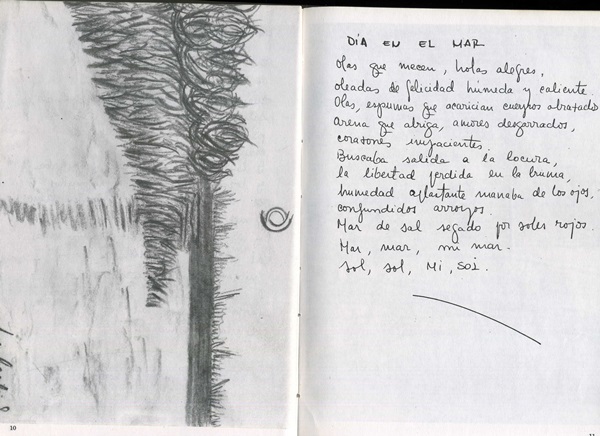 DÍA EN EL MAR
Olas que mecen, holas alegres,
oleadas de felicidad húmeda y caliente.
Olas, espumas que acarician cuerpos abrazados
arena que abriga, amores desgarrados,
corazones impacientes.
Buscaba salida a la locura,
la libertad perdida en la bruma,
humedad aplastante manaba de los ojos,
confundidos arroyos.
Mar de sal segado por soles rojos.
Mar, mar, mi mar.
Sol, sol, Mi, SOL.
10